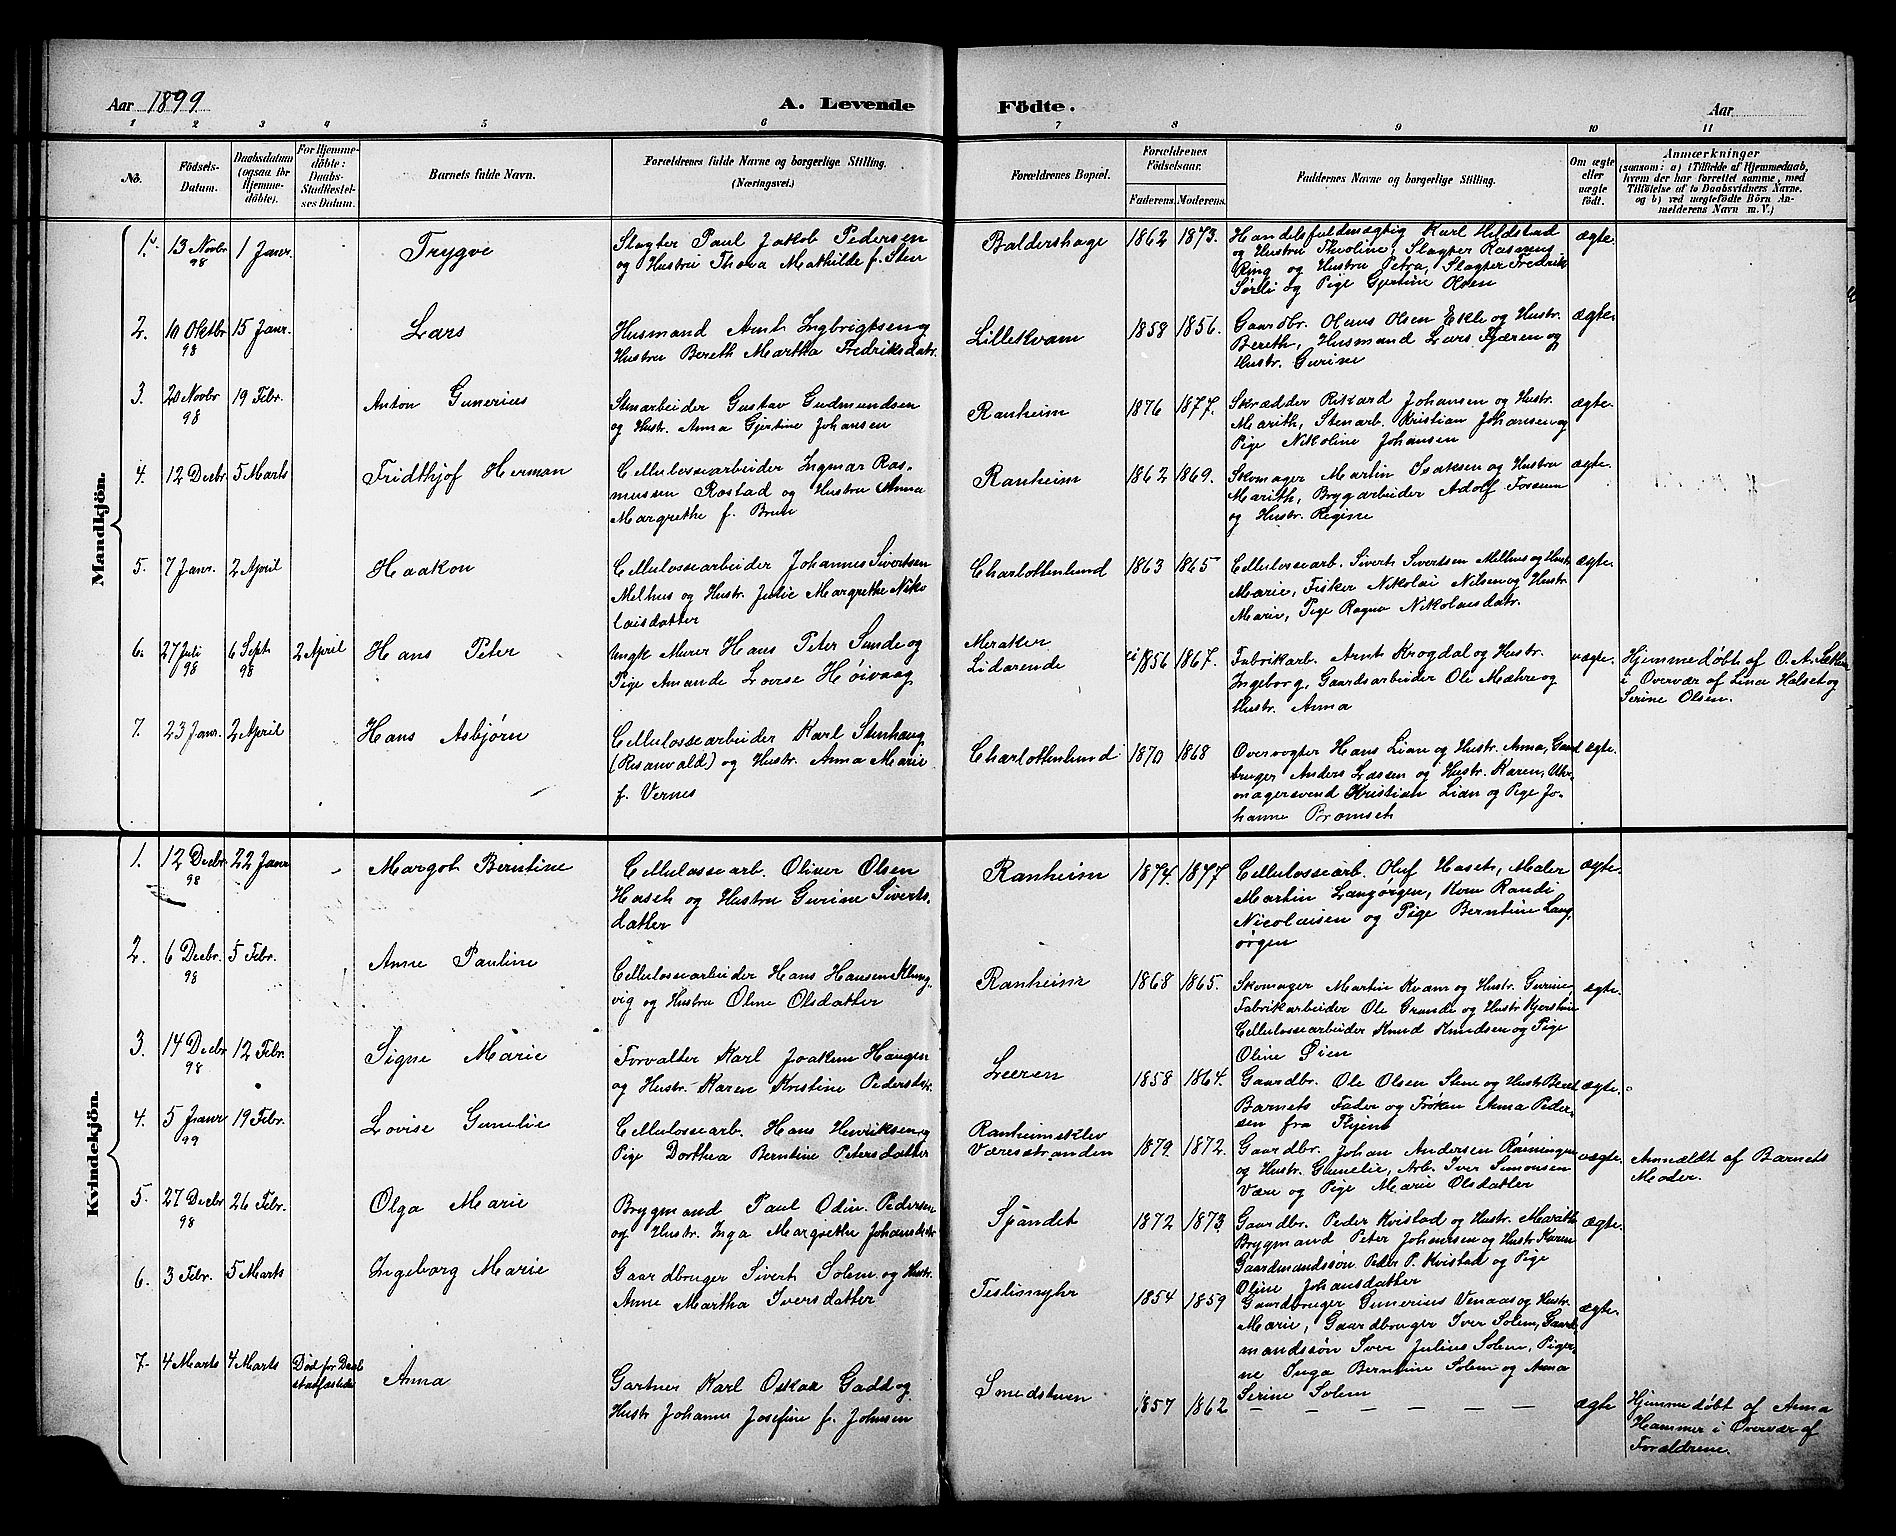 Aar 1899 A. Levende Födte. Aar
1 2 3 4 5 6 7 8 9 10 11
No. Födsels-Datum. Daabsdatum (ogsaa for Hjemme-döbte). For Hjemme-döbte: Daabs-Stadfæstel-ses Datum. Barnets fulde Navn. Forældrenes fulde Navne og borgerlige Stilling. (Næringsvei.) Forældrenes Bopæl. Forældrenes Födselsaar. Faderens. Moderens. Faddernes Navne og borgerlige Stilling. Om ægte eller uægte födt. Anmærkninger (saasom: a) i Tilfælde af Hjemmedaab, hvem der har forrettet samme, med Tilföielse af to Daabsvidners Navne. og b) ved uægtefödte Börn An-melderens Navn m. V.)
Mandkjön.
1. 13 Novbr 98 1 Janr. Trygve
Slagter Paul Jakob Pedersen
og Hustru Thora Mathilde f. Sten
Baldershage 1862 1873.
Handelsfuldmægtig Karl Hildstad
og Hustru Theoline, Slagter Rasmus
Ring og Hustru Petra, Slagter Fredrik
Sørli og Pige Gjertine Olsen
ægte
2. 10 Oktbr 98 15 Janr. Lars
Husmand Arnt Ingbrigtsen og
Hustru Bereth Martha Fredriksdatr.
Lillekvam 1858 1856.
Gaardbr. Olaus Olsen Ekle og Hustr.
Bereth, Husmand Lars Fjæren og
Hustr. Gurine
ægte.
3. 20 Novbr 98 19 Febr. Anton Gunerius
Stenarbeider Gustav Gudmundsen
og Hustr. Anna Gjertine Johansen
Ranheim 1876 1877.
Skrædder Rikard Johansen og Hustr.
Marith, Stenarb. Kristian Johansen og
Pige Nikoline Johansen
ægte.
4. 12 Decbr 5 Marts Fridthjof Herman
Cellulossearbeider Ingmar Ras-
mussen Rostad og Hustru Anna
Margrethe f. Brun
Ranheim 1862 1869.
Skomager Martin Isaksen og Hustru
Marith, Brygarbeider Adolf Forsmo
og Hustr. Regine
ægte.
5. 7 Janr. 2 April Haakon
Cellulossearbeider Johannes Sivertsen
Melhus og Hustr. Julie Margrethe Niko
laisdatter
Charlottenlund 1863 1865
Cellulossearb. Sivert Sivertsen Melhus og Hustr
Marie, Fisker Nikolai Nilsen og Hustr
Marie, Pige Ragna Nikolaisdatr.
ægte.
6. 27 Juli 98 6 Sept. 98 2 April Hans Peter
Ungk Murer Hans Peter Sunde og
Pige Amande Lovise Høivaag
Meraker
Lidarende 1856 1867.
Fabrikarb. Arnt Krogdal og Hustr.
Ingeborg, Gaardsarbeider Ole Mæhre og
Hustr. Anna
uægte.
Hjemmedøbt af O. A.
i Overvær af Lina Halset og
Serine Olsen.
7. 23 Janr. 2 April Hans Asbjørn
Cellulossearbeider Karl Stenhaug
(Risanvald) og Hustr. Anna Marie
f. Vernes
Charlottenlund 1870 1868
Overvogter Hans Lian og Hustr. Anna, Gaard
bruger Anders Lassen og Hustr. Karen, Uhr-
magersvend Kristian Lian og Pige Jo-
hanne Bromseth
ægte.
Kvindekjön.
1. 12 Decbr. 98 22 Janr Margot Berntine
Cellulossearb. Oliver Olsen
Haseth og Hustru Gurine Siverts-
datter
Ranheim 1874. 1877
Cellulossearb. Oluf Haseth, Maler
Martin Langørgen, Kone Randi
Nicolaisen og Pige Berntine Lang
ørgen
ægte.
2. 6 Decbr. 98 5 Febr. Anne Pauline
Cellulossearbeider Hans Hansen Klung
vig og Hustru Oline Olsdatter
Ranheim 1868 1865.
Skomager Martin Kvam og Hustr. Gurine,
Fabrikarbeider Ole Grande og Hustr Kjerstine
Cellulossearbeider Knud Knudsen og Pige
Oline Øien
ægte.
3. 14 Decbr 98 12 Febr. Signe Marie
Forvalter Karl Joakim Haugen
og Hustr. Karen Kristine Pedersdtr.
Leeren 1858 1864.
Gaardbr. Ole Olsen Stene og Hustr Beret
Barnets Fader og Frøken Anna Peder-
sen fra
ægte.
4. 5 Janr 99 19 Febr. Lovise Gunelie
Cellulossearb. Hans Henriksen og
Pige Dorthea Berntine Petersdatter
Ranheimsklev
Væresstranden 1879. 1872.
Gaardbr. Johan Andersen Rønningen
og Hustr. Gunelie, Arb. Iver Simonsen
Være og Pige Marie Olsdatter
uægte.
Anmældt af Barnets
Moder.
5. 27 Decbr 98 26 Febr. Olga Marie
Brygmand Paul Odin Pedersen
og Hustr. Inga Margrethe Johansdtr
Sjåndet 1872 1873
Gaardbr. Peder Kvistad og Hustr. Marith
Brygmand Peter Johansen og Hustr Karen
Gaardmandssøn Peder P. Kvistad og Pige
Oline Johansdatter
ægte.
6. 3 Febr. 5 Marts Ingeborg Marie
Gaardbruger Sivert Solem og Hustr.
Anne Martha Iversdatter
Teslimyhr 1854 1859
Gaardbruger Gunerius Venaas og Hustr.
Marie, Gaardbruger Iver Solem, Gaard-
mandssøn Iver Julius Solem, Piger-
ne Inga Berntine Solem og Anna
Serine Solem
ægte.
7. 4 Marts 4 Marts Død før Daab
stadfæstelse Anna
Gartner Karl Oskar Gadd og
Hustr Johanne Josefine f. Johnsen
Smedstuen 1857 1862
— — — — — —
ægte
Hjemmedøbt af Anna
Hammer i Overvær af
Forældrene.